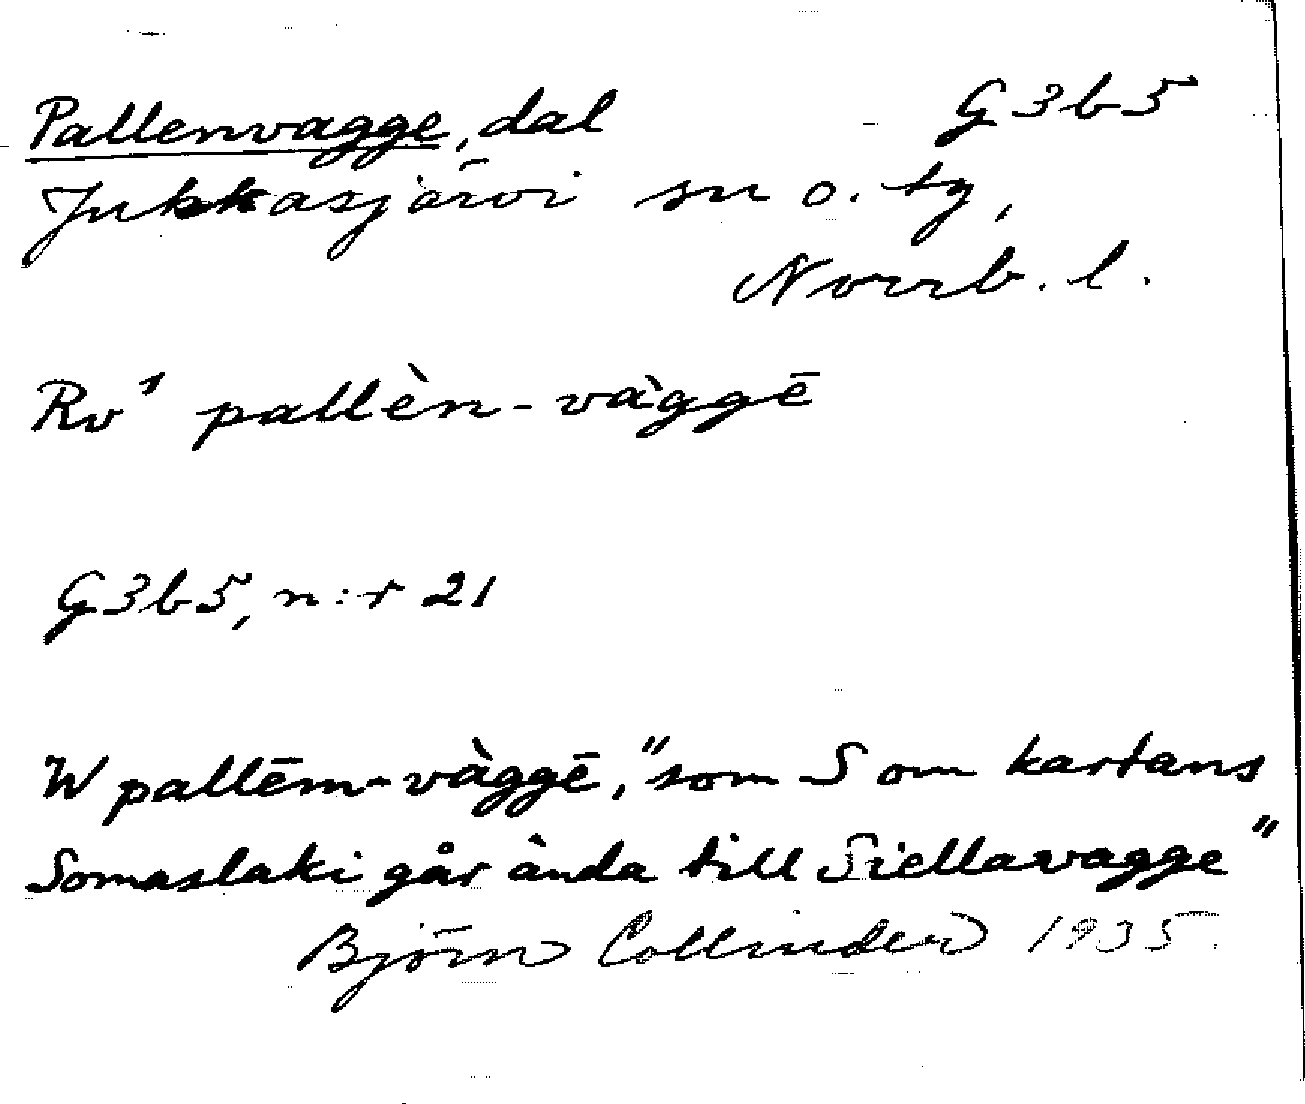 Pallenvagge, dal G3b5
Jukkasjärvi sn o. tg,
Norrb. l.
Rv¹ pallèn-vàggē
G3b5, n:r 21
W pallēm-vàggē, "som S om kartans
Somaslaki går ända till Siellavagge"
Björn Collinder 1935.